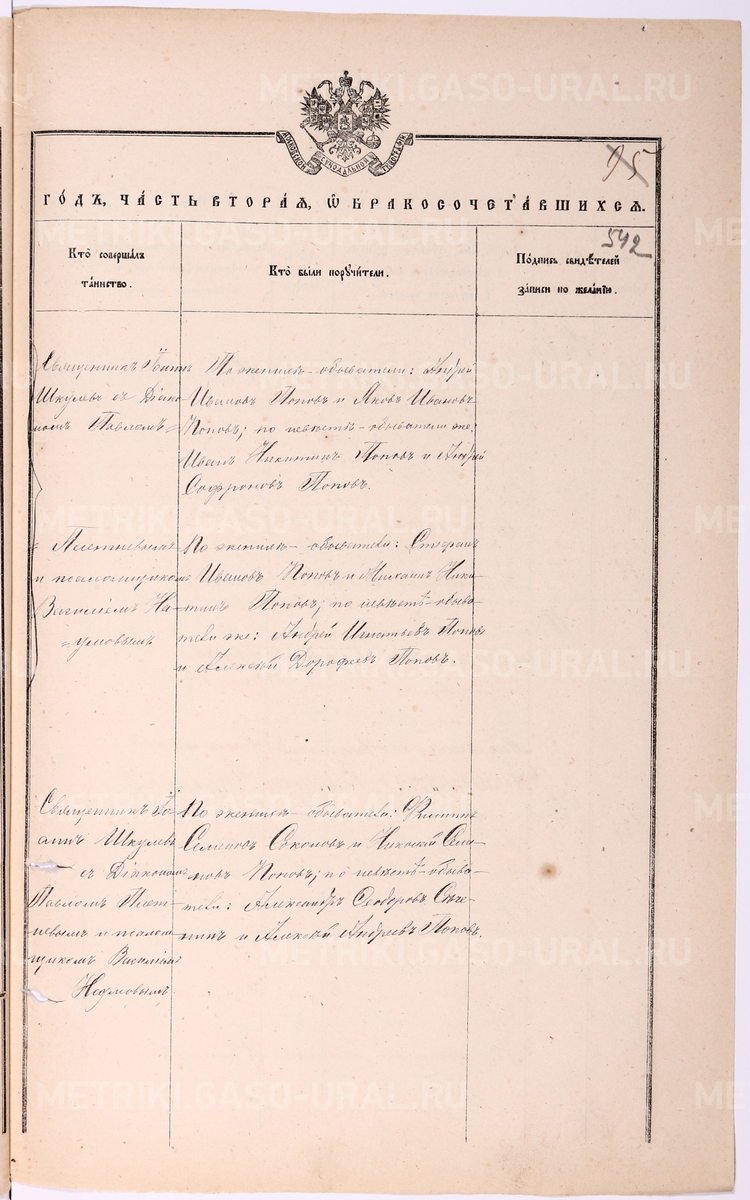 МОСКОВСКОЙ СѴНОДАЛЬНОЙ ТИПОГРАФІИ
95
ГОДЪ, ЧАСТЬ ВТОРАЯ, Ѽ БРАКОСОЧЕТАВШИХСЯ.
542
Кто совершалъ
таинство.
Кто были поручители.
Подпись свидѣтелей
записи по желанію.
Священникъ
Шкулевъ съ Діако
номъ Павломъ=
По женихѣ - обыватели: Андрей
Ивановъ Поповъ и Яковъ Ивановъ
Поповъ; по невѣстѣ - обыватели же:
Иванъ Никитинъ Поповъ и Андрей
Софроновъ Поповъ.
= Плетневымъ
и псаломщикомъ
Василіемъ На-
=умовымъ
По женихѣ - обыватели: Стефанъ
Ивановъ Поповъ и Михаилъ Ники-
тинъ Поповъ; по невѣстѣ - обыва-
тели же: Андрей Игнатьевъ Поповъ
и Алексѣй Дорофеевъ Поповъ.
Священникъ Іо-
аннъ Шкулевъ
съ Діакономъ
Павломъ Плет-
невымъ и псалом-
щикомъ Василіемъ
Наумовымъ.
По женихѣ - обыватели: Филиппъ
Семеновъ Соколовъ и Николай Семе-
новъ Поповъ; по невѣстѣ - обыва-
тели: Александръ Ѳеодоровъ
и Алексѣй Андреевъ Поповъ.
METRIKI.GASO-URAL.RU